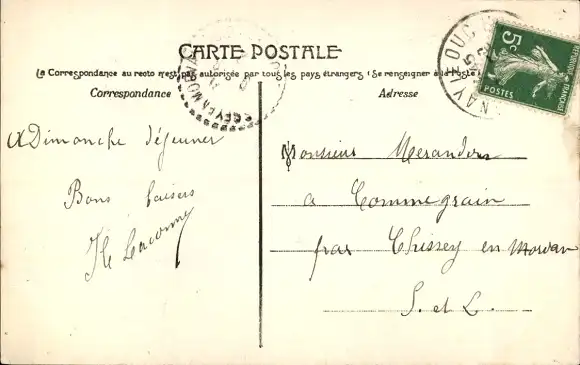 CARTE POSTALE
La Correspondance au recto n'est pas autorisée par tous les pays étrangers (Se renseigner à la Poste)
Correspondance
Adresse
A Dimanche déjeuner
Bons baisers
Monsieur
à Commegrain
par Chissey en Morvan
S. et L.
5c
POSTES